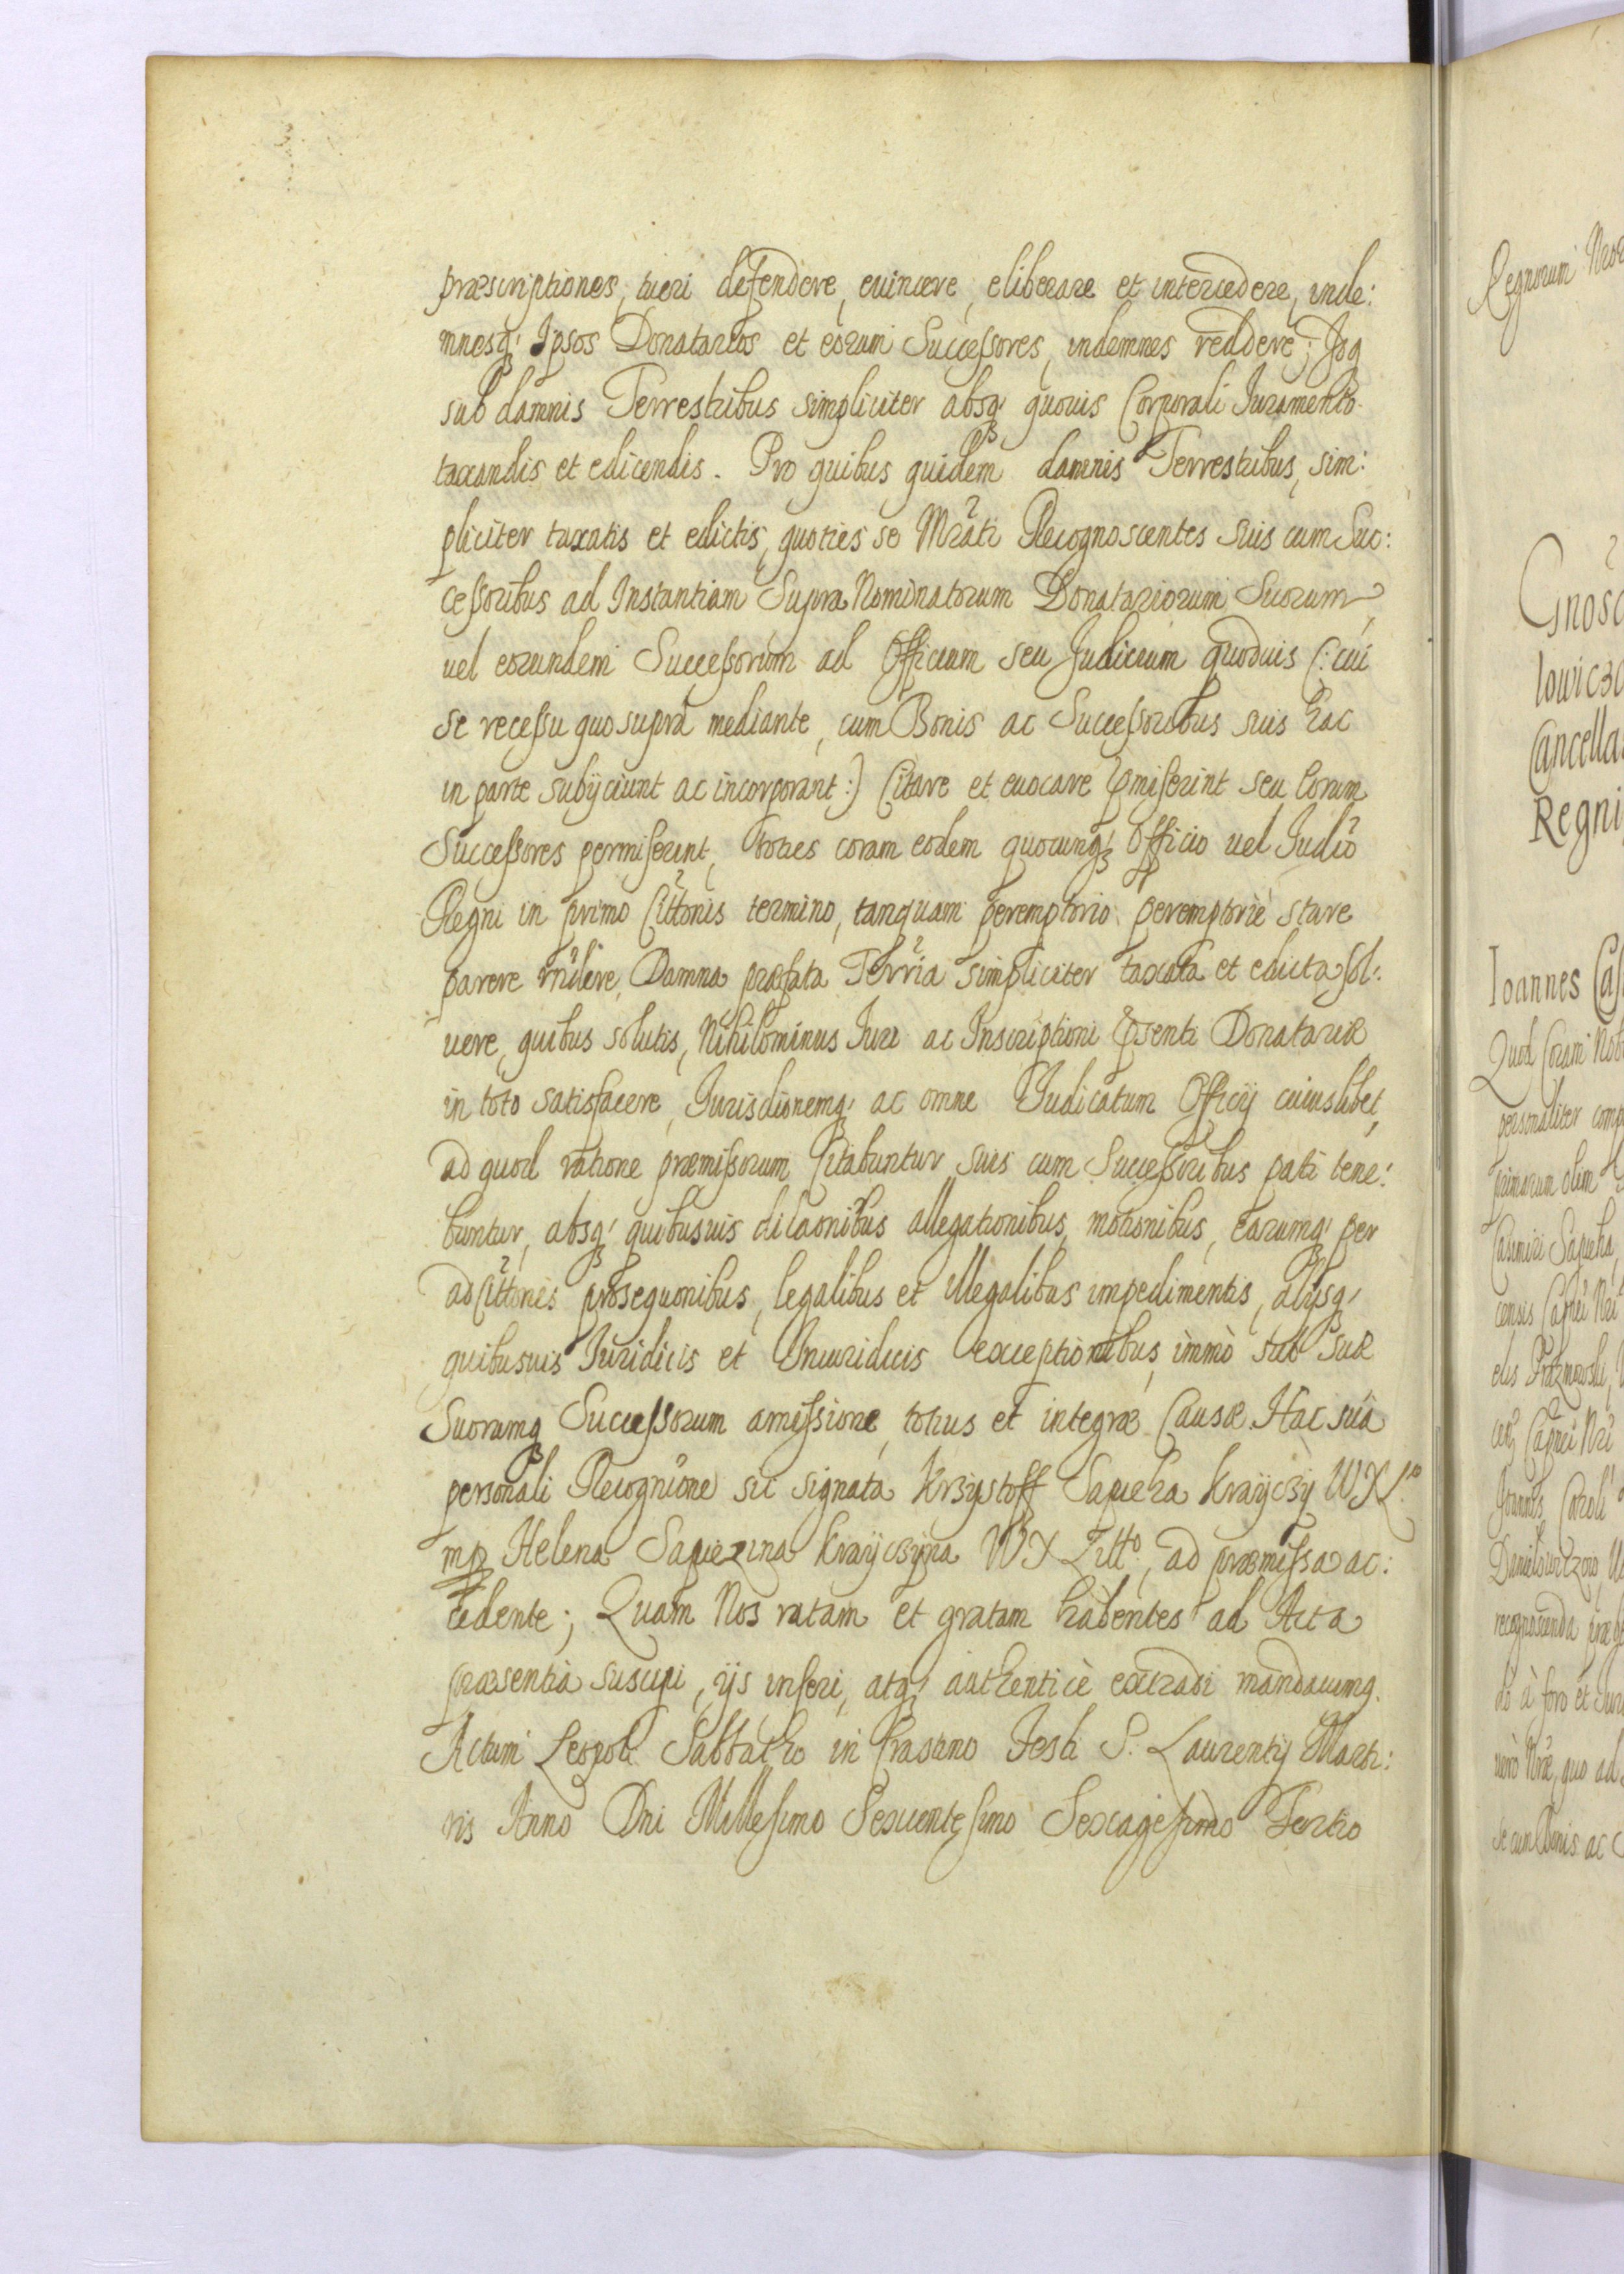 præscriptiones, tueri defendere, euincere, eliberare et intercedere, inde:
mnesq́ Ipsos Donatarios et eorum Successores, indemnes reddere; Idq
sub damnis Terrestribus simpliciter absq́ quouis Corporali Iuramento
taxandis et edicendis. Pro quibus quidem damnis Terrestribus, sim:
pliciter taxatis et edictis, quoties se Mrãti Recognoscentes suis cum Suc:
cessoribus ad Instantiam Supra Nominatorum Donatariorum Suorum,
uel eorundem Successorum ad Officium seu Iudicium quoduis (: cui
se recessu quo suprà mediante, cum Bonis ac Successoribus suis hac
in parte subijciunt ac incorporant :) Citare et euocare pmiserint seu Eorum
Successores permiserint, toties coram eodem quocunq́ Officio uel Iudio
Regni in primo Cittonis termino, tanquam peremptorio peremptoriè stare
parere rñdere, Damna præfata Terria simpliciter taxata et edicta sol:
uere, quibus solutis, Nihilominus Iuri ac Inscriptioni psenti Donatariæ
in toto satisfacere, Iurisdionemq́ ac omne Iudicatum Officij cuiuslibet,
ad quod ratione præmissorum Citabuntur suis cum Successoribus pati tene:
buntur, absq́ quibusuis dilaonibus allegationibus, motionibus, earumq́ per
ad Cittones prosequonibus, legalibus et illegalibus impedimentis, alijsq́
quibusuis Iuridicis et Iniuridicis exceptionibus, immò sub suæ
Suorumq Successorum amissione, totius et integræ Causæ. Hac suâ
personali Recognione sic signata Krzysztoff Sapieha Krayczy WXL.º
mp Helena Sapiezina Krayczyna WXLittº, ad præmissa ac:
cedente; Quam Nos ratam et gratam habentes ad Acta
præsentia suscipi, ijs inseri, atq́ authenticè extradi mandauimq.
Actum Leopoli Sabbatho in Crastino Festi S. Laurentij Marti:
ris Anno Dni Millesimo Sexcentesimo Sexagesimo Tertio
Regnorum
lowicz
Regni
Ioannes
Quod Coram
personaliter
olim
Casimiri Sapieha
censis Capnei Nri
Capnei Nri
Ioannis Caroli
recognoscenda
à foro et
uero Nræ, quo ad
se cum Bonis ac